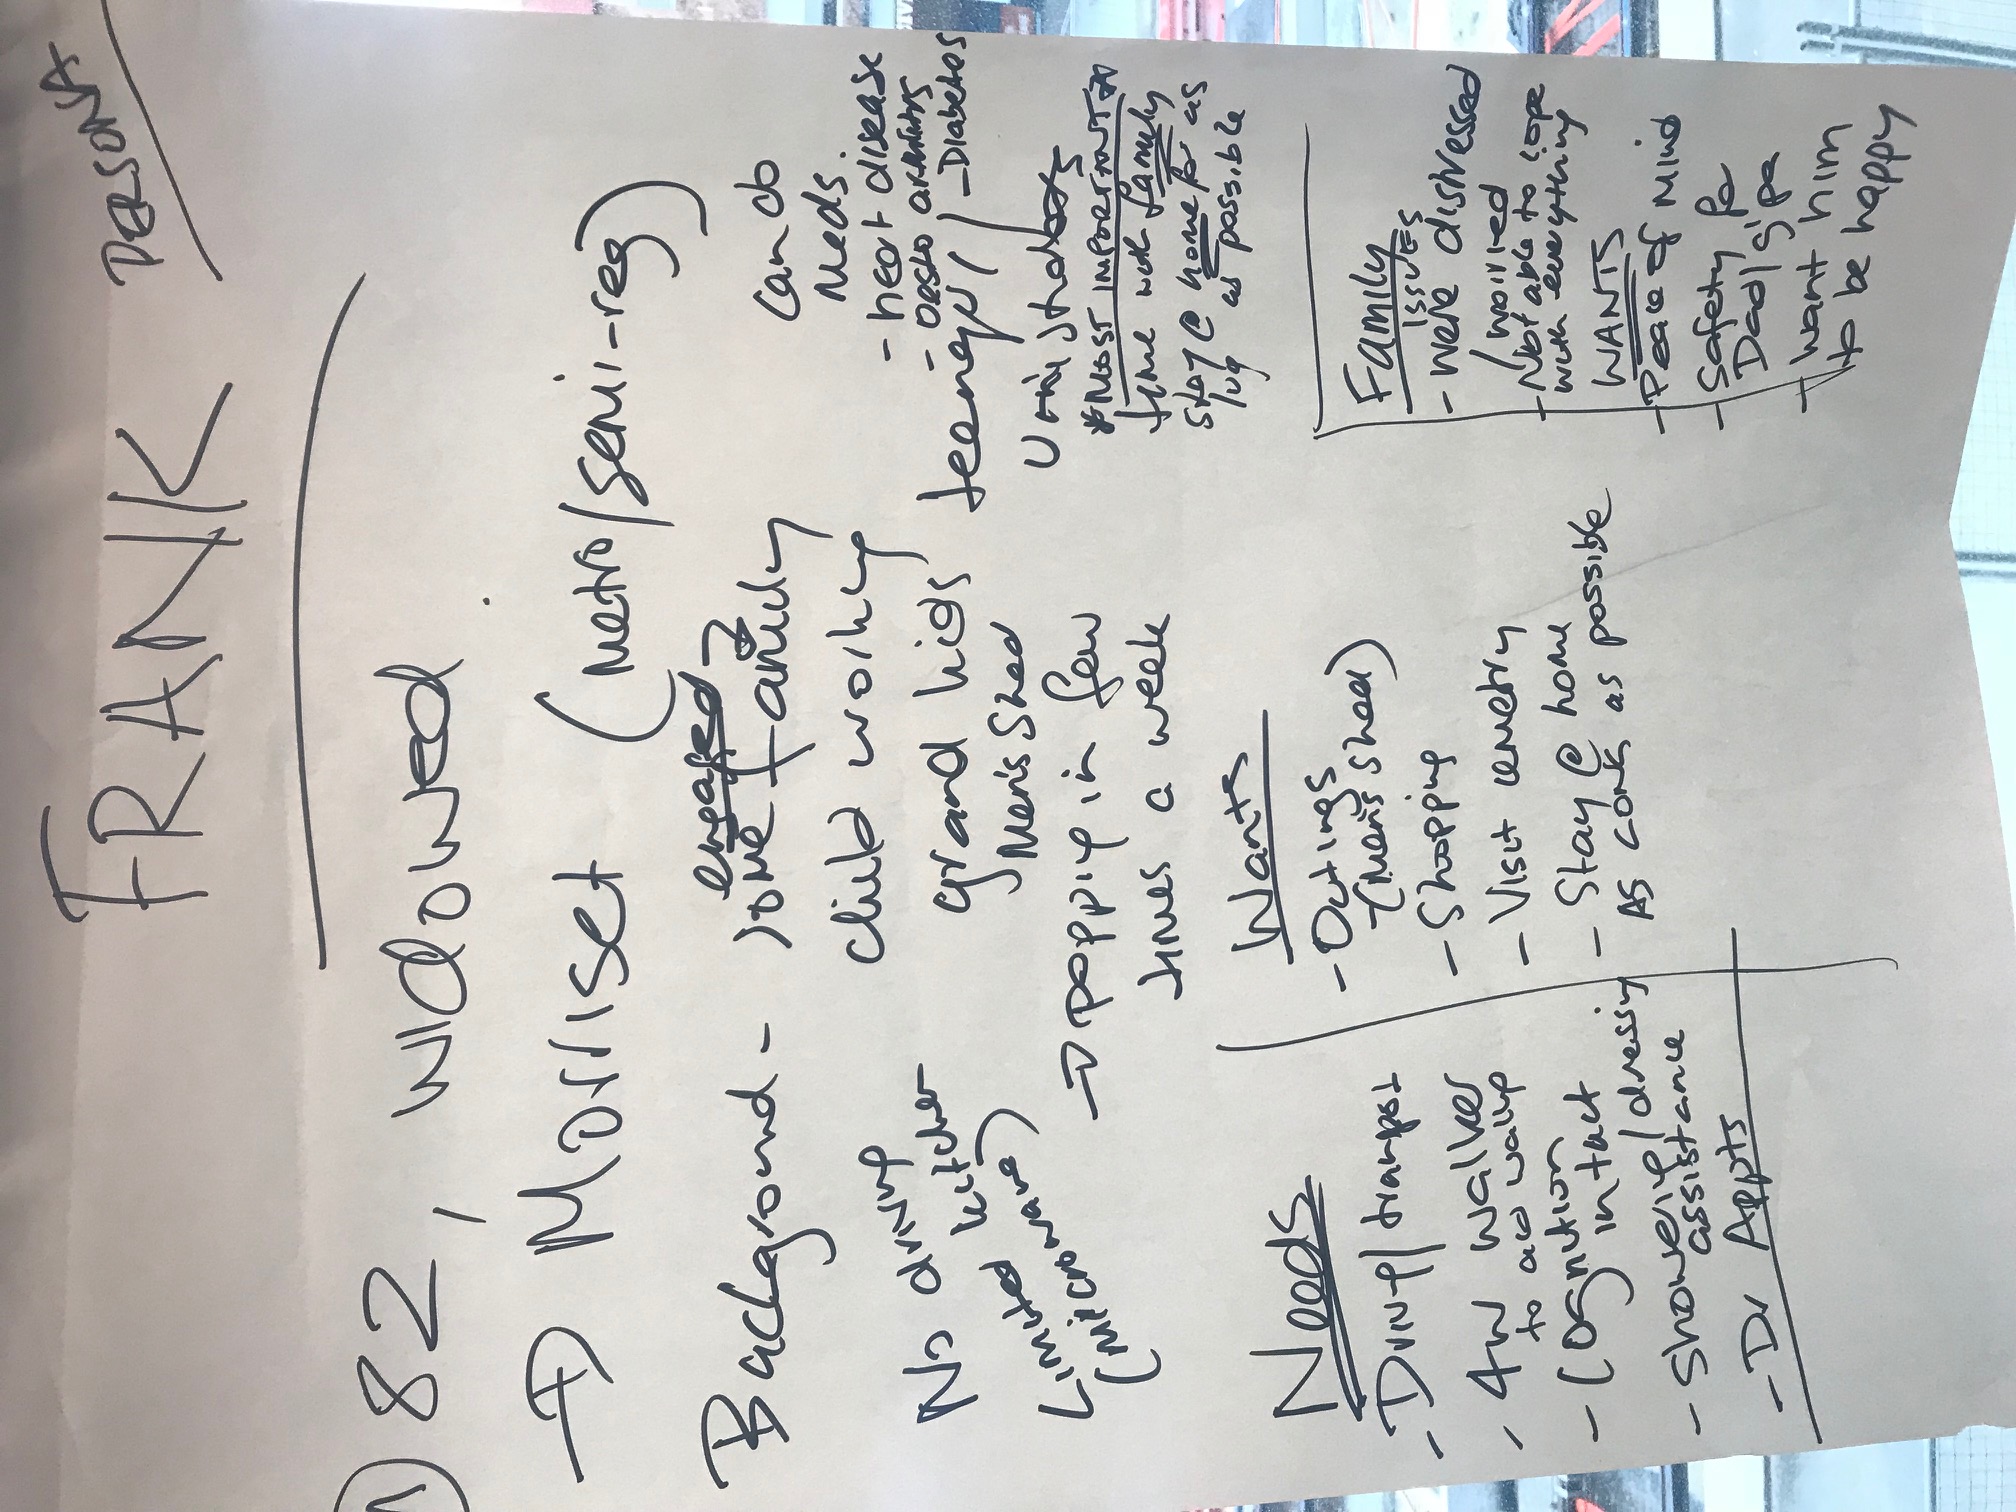 PERSONA
FRANK
82, widowed
Morriset (metro/semi-reg)
Background - engaged
some family
child working
grand kids teenagers/
Uni students
Men's Shed
can do
Meds.
- heart disease
- osteo arthritis
- Diabetes
No driving
No kitchen
Limited
(microwave)
→ popping in few
times a week
* MOST IMPORTANT *
time with family
stay @ home for as
long as possible
Needs
- Driving/transport
- 4W Walker
to aid walking
- Cognition
intact
- Showering/dressing
assistance
- Dr Appts
Wants
- Outings
(Men's Shed)
- Shopping
- Visit cemetry
- Stay @ home
AS LONG as possible
Family
ISSUES
- were distressed
/worried
- Not able to cope
with everything
WANTS
- Peace of Mind
- Safety for
Dad/g'pa
- Want him
to be happy